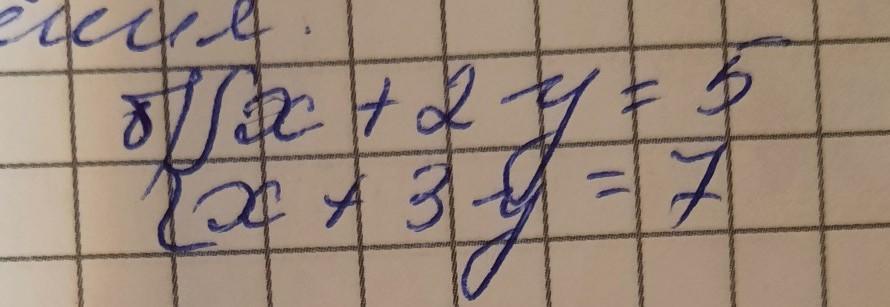 ения.
б) { x + 2y = 5
{ x + 3y = 7